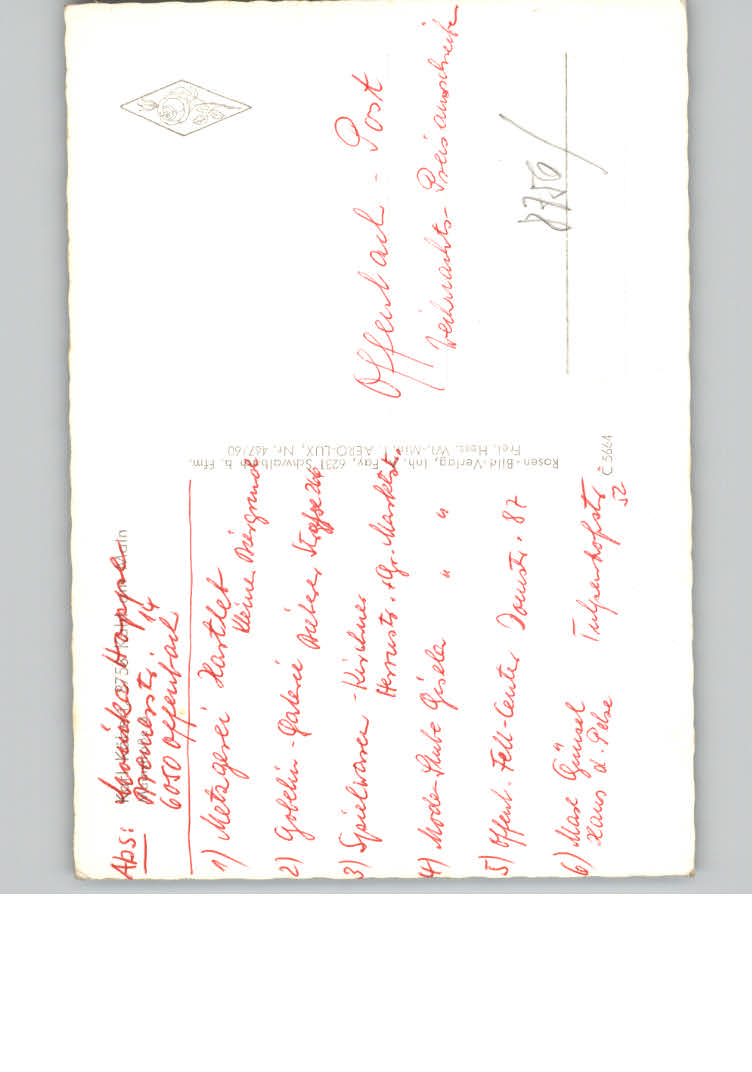 Abs: Monika Hoppe
Bremerstr. 14
6050 Offenbach
1) Metzgerei Hartlet
kleine Biergrund
2) Gobelin-Galerie Bieberer Straße 216
3) Spielwaren - Kirchner
Herrnstr. + Gr. Marktstr.
4) Mode-Stube Gisela " "
5) Offenb. Fell-Center Domstr. 87
6) Max Günsel Tulpenhofstr
Haus d. Pelze 52
Rosen-Bild-Verlag, Inh. Fay, 6231 Schwalbach b. Ffm.
Frei. Hess. Wi.-Min. AERO-LUX, Nr. 467/60
C 5664
Offenbach - Post
Weihnachts-Preisausschreiben
8756